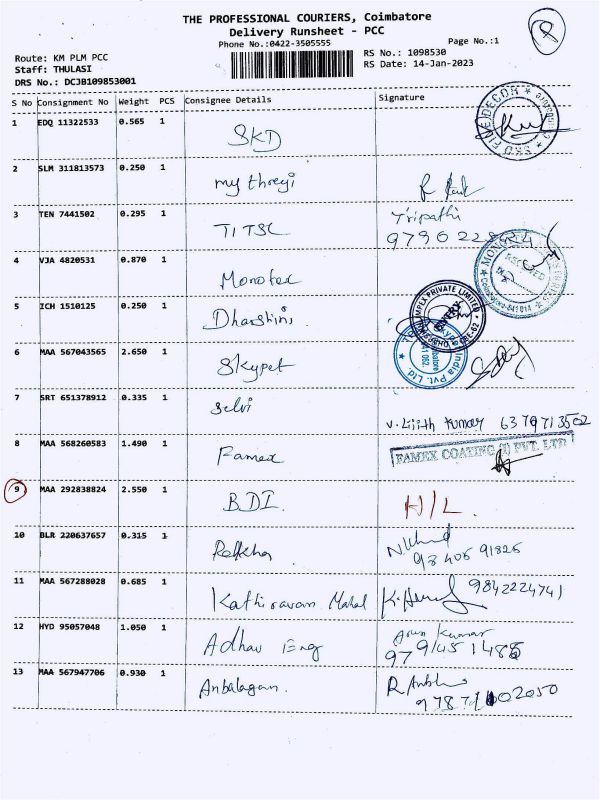 THE PROFESSIONAL COURIERS, Coimbatore
Delivery Runsheet - PCC
Phone No.:0422-3505555
Page No.:1
Route: KM PLM PCC
RS No.: 1098530
Staff: THULASI
RS Date: 14-Jan-2023
DRS No.: DCJB109853001
S No Consignment No Weight PCS Consignee Details Signature
1 EDQ 11322533 0.565 1 SKD
2 SLM 311813573 0.250 1 mythreyi
3 TEN 7441502 0.295 1 TITSC Tripathi
4 VJA 4820531 0.870 1 Monotex
5 ICH 1510125 0.250 1 Dharshini
6 MAA 567043565 2.650 1 Skypet
7 SRT 651378912 0.335 1 Selvi
v. Lijith Kumar 6379713502
8 MAA 568260583 1.490 1 Famex FAMEX COATING (I) PVT. LTD
9 MAA 292838824 2.550 1 BDI. H/L.
10 BLR 220637657 0.315 1
93406 91826
11 MAA 567288028 0.685 1 Kathiravan Mahal 9842224741
12 HYD 95057048 1.050 1 Adhav Eng Arun Kumar
13 MAA 567947706 0.930 1 Anbalagan.